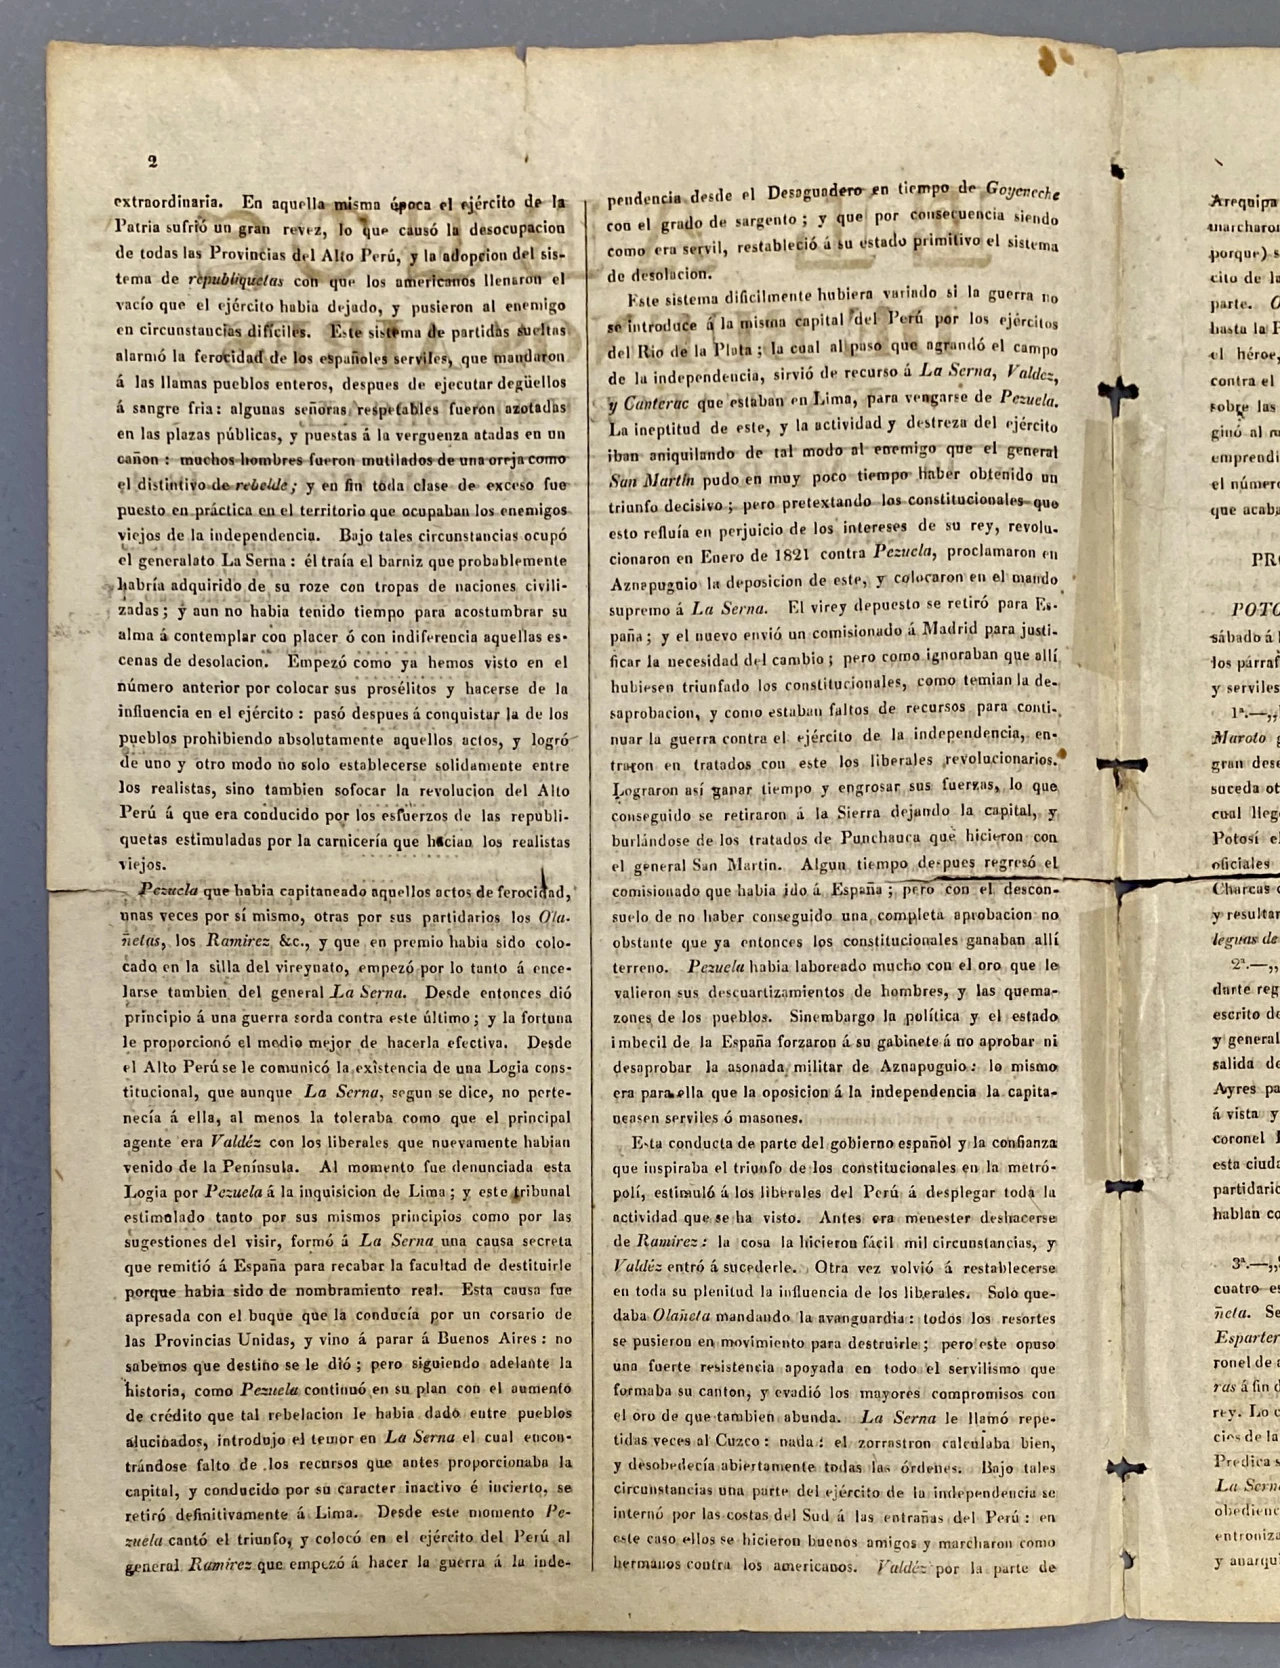 2
extraordinaria. En aquella misma época el ejército de la
Patria sufrió un gran revez, lo que causó la desocupacion
de todas las Provincias del Alto Perú, y la adopcion del sis-
tema de republiquetas con que los americanos llenaron el
vacío que el ejército habia dejado, y pusieron al enemigo
en circunstancias difíciles. Este sistema de partidas sueltas
alarmó la ferocidad de los españoles serviles, que mandaron
á las llamas pueblos enteros, despues de ejecutar degüellos
á sangre fria: algunas señoras respetables fueron azotadas
en las plazas públicas, y puestas á la verguenza atadas en un
cañon: muchos hombres fueron mutilados de una oreja como
el distintivo de rebelde; y en fin toda clase de exceso fue
puesto en práctica en el territorio que ocupaban los enemigos
viejos de la independencia. Bajo tales circunstancias ocupó
el generalato La Serna: él traía el barniz que probablemente
habría adquirido de su roze con tropas de naciones civili-
zadas; y aun no habia tenido tiempo para acostumbrar su
alma á contemplar con placer ó con indiferencia aquellas es-
cenas de desolacion. Empezó como ya hemos visto en el
número anterior por colocar sus prosélitos y hacerse de la
influencia en el ejército: pasó despues á conquistar la de los
pueblos prohibiendo absolutamente aquellos actos, y logró
de uno y otro modo no solo establecerse solidamente entre
los realistas, sino tambien sofocar la revolucion del Alto
Perú á que era conducido por los esfuerzos de las republi-
quetas estimuladas por la carnicería que hacian los realistas
viejos.
Pezuela que habia capitaneado aquellos actos de ferocidad,
unas veces por sí mismo, otras por sus partidarios los Ola-
ñetas, los Ramirez &c., y que en premio habia sido colo-
cado en la silla del vireynato, empezó por lo tanto á ence-
larse tambien del general La Serna. Desde entonces dió
principio á una guerra sorda contra este último; y la fortuna
le proporcionó el medio mejor de hacerla efectiva. Desde
el Alto Perú se le comunicó la existencia de una Logia cons-
titucional, que aunque La Serna, segun se dice, no perte-
necía á ella, al menos la toleraba como que el principal
agente era Valdéz con los liberales que nuevamente habian
venido de la Península. Al momento fue denunciada esta
Logia por Pezuela á la inquisicion de Lima; y este tribunal
estimolado tanto por sus mismos principios como por las
sugestiones del visir, formó á La Serna una causa secreta
que remitió á España para recabar la facultad de destituirle
porque habia sido de nombramiento real. Esta causa fue
apresada con el buque que la conducía por un corsario de
las Provincias Unidas, y vino á parar á Buenos Aires: no
sabemos que destino se le dió; pero siguiendo adelante la
historia, como Pezuela continuó en su plan con el aumento
de crédito que tal rebelacion le habia dado entre pueblos
alucinados, introdujo el temor en La Serna el cual encon-
trándose falto de los recursos que antes proporcionaba la
capital, y conducido por su caracter inactivo é incierto, se
retiró definitivamente á Lima. Desde este momento Pe-
zuela cantó el triunfo, y colocó en el ejército del Perú al
general Ramirez que empezó á hacer la guerra á la inde-
pendencia desde el Desaguadero en tiempo de Goyeneche
con el grado de sargento; y que por consecuencia siendo
como era servil, restableció á su estado primitivo el sistema
de desolacion.
Este sistema dificilmente hubiera variado si la guerra no
se introduce á la misma capital del Perú por los ejércitos
del Rio de la Plata; la cual al paso que agrandó el campo
de la independencia, sirvió de recurso á La Serna, Valdez,
y Canterac que estaban en Lima, para vengarse de Pezuela.
La ineptitud de este, y la actividad y destreza del ejército
iban aniquilando de tal modo al enemigo que el general
San Martín pudo en muy poco tiempo haber obtenido un
triunfo decisivo; pero pretextando los constitucionales que
esto refluía en perjuicio de los intereses de su rey, revolu-
cionaron en Enero de 1821 contra Pezuela, proclamaron en
Aznapuguio la deposicion de este, y colocaron en el mando
supremo á La Serna. El virey depuesto se retiró para Es-
paña; y el nuevo envió un comisionado á Madrid para justi-
ficar la necesidad del cambio; pero como ignoraban que allí
hubiesen triunfado los constitucionales, como temian la de-
saprobacion, y como estaban faltos de recursos para conti-
nuar la guerra contra el ejército de la independencia, en-
traron en tratados con este los liberales revolucionarios.
Lograron así ganar tiempo y engrosar sus fuerzas, lo que
conseguido se retiraron á la Sierra dejando la capital, y
burlándose de los tratados de Punchauca que hicieron con
el general San Martin. Algun tiempo despues regresó el
comisionado que habia ido á España; pero con el descon-
suelo de no haber conseguido una completa aprobacion no
obstante que ya entonces los constitucionales ganaban allí
terreno. Pezuela habia laboreado mucho con el oro que le
valieron sus descuartizamientos de hombres, y las quema-
zones de los pueblos. Sinembargo la política y el estado
imbecil de la España forzaron á su gabinete á no aprobar ni
desaprobar la asonada militar de Aznapuguio: lo mismo
era para ella que la oposicion á la independencia la capita-
neasen serviles ó masones.
Esta conducta de parte del gobierno español y la confianza
que inspiraba el triunfo de los constitucionales en la metró-
polí, estimuló á los liberales del Perú á desplegar toda la
actividad que se ha visto. Antes era menester deshacerse
de Ramirez: la cosa la hicieron fácil mil circunstancias, y
Valdéz entró á sucederle. Otra vez volvió á restablecerse
en toda su plenitud la influencia de los liberales. Solo que-
daba Olañeta mandando la avanguardia: todos los resortes
se pusieron en movimiento para destruirle; pero este opuso
una fuerte resistencia apoyada en todo el servilismo que
formaba su canton, y evadió los mayores compromisos con
el oro de que tambien abunda. La Serna le llamó repe-
tidas veces al Cuzco: nada: el zorrastron calculaba bien,
y desobedecía abiertamente todas las órdenes. Bajo tales
circunstancias una parte del ejército de la independencia se
internó por las costas del Sud á las entrañas del Perú: en
este caso ellos se hicieron buenos amigos y marcharon como
hermanos contra los americanos. Valdéz por la parte de
Arequipa
marcharon
porque) s
cito de la
parte. O
hasta la P
el héroe,
contra el
sobre las
ginó al
emprendi
el número
que acaba
PRO
POTO
sábado á l
los párraf
y serviles
1ª.—„
Maroto g
gran dese
suceda ot
cual lleg
Potosí el
oficiales
Charcas
y resultar
leguas de
2ª.—„
darte reg
escrito de
y general
salida de
Ayres pa
á vista y
coronel
esta ciuda
partidario
hablan co
3ª.—„
cuatro es
ñeta. Se
Esparter
ronel de
ras á fin d
rey. Lo c
cios de la
Predica s
La Serna
obedienc
entroniza
y anarqui